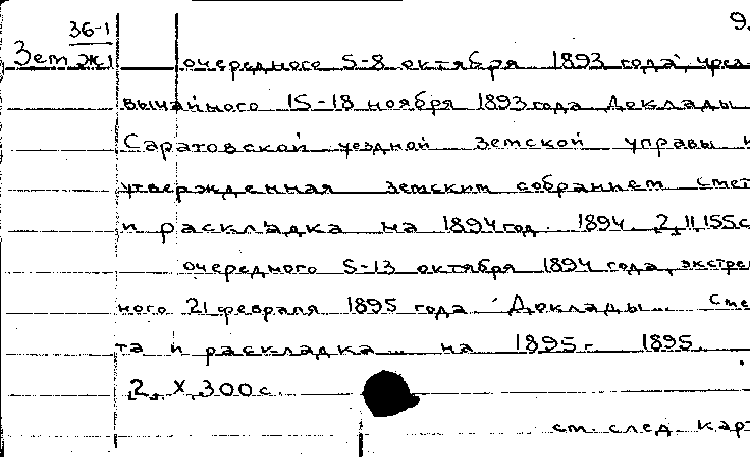 36-1 9.
Зем Ж1 очередного 5-8 октября 1893 года, чрез
вычайного 15-18 ноября 1893 года Доклады
Саратовской уездной земской управы и
утвержденная земским собранием смет
и раскладка на 1894 год. 1894. 2, II, 155 с
очередного 5-13 октября 1894 года, экстре
ного 21 февраля 1895 года. Доклады... Сме
та и раскладка... на 1895 г. 1895.
2, X, 300 с.
см. след. карт